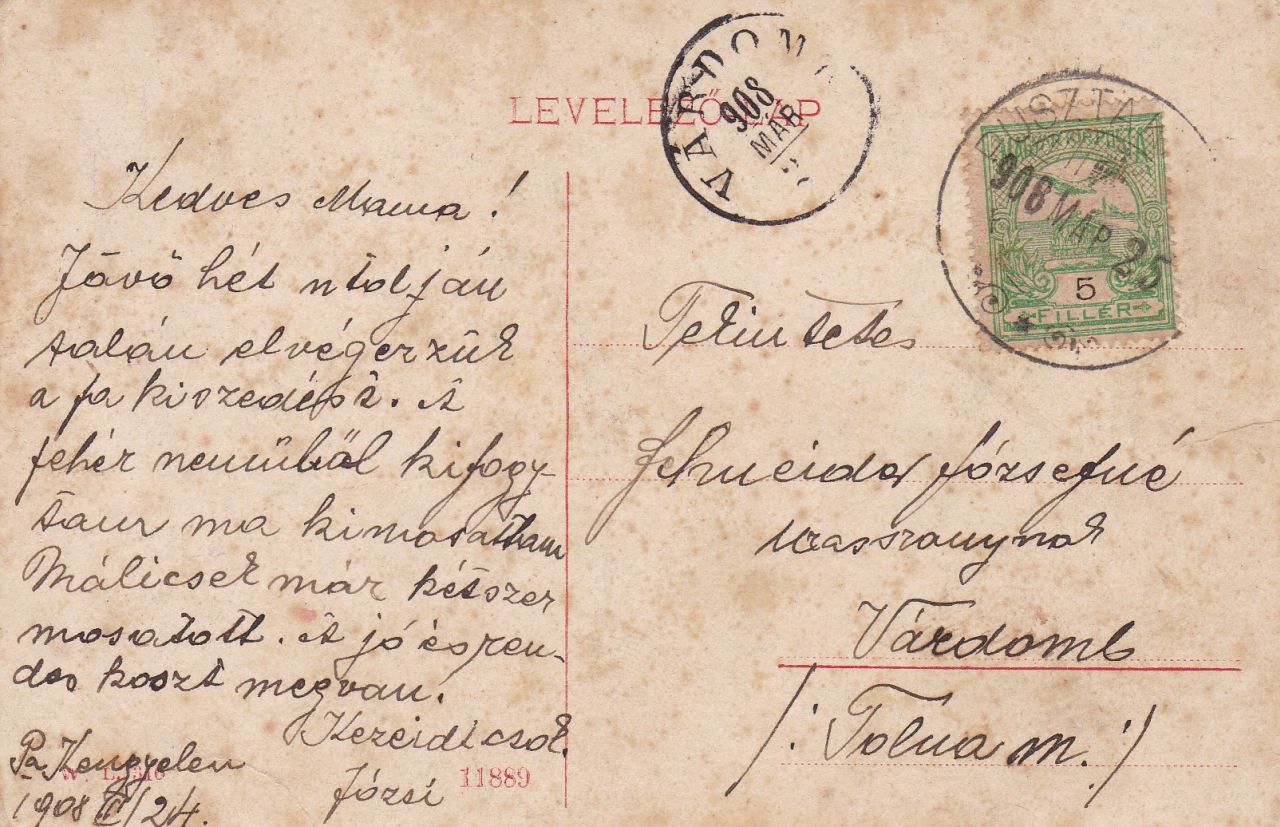 LEVELEZŐ-LAP
VÁRDOMB
908
MÁR
PUSZTA
MAGYAR KIR. POSTA
908 MÁR 25
5
FILLÉR
Kedves Mama!
Jövő hét utolján
talán elvégezzük
a fa kiszedést. A
fehér neműből kifogy-
tam ma kimosattam
Málicsek már kétszer
mosatott. A jó és ren-
des koszt megvan.
Kezeidt csok.
Józsi
Pa Kengyelen
1908 II/24.
11889
Tekintetes
Schneider Józsefné
urasszonynak
Várdomb
/: Tolna m. :/